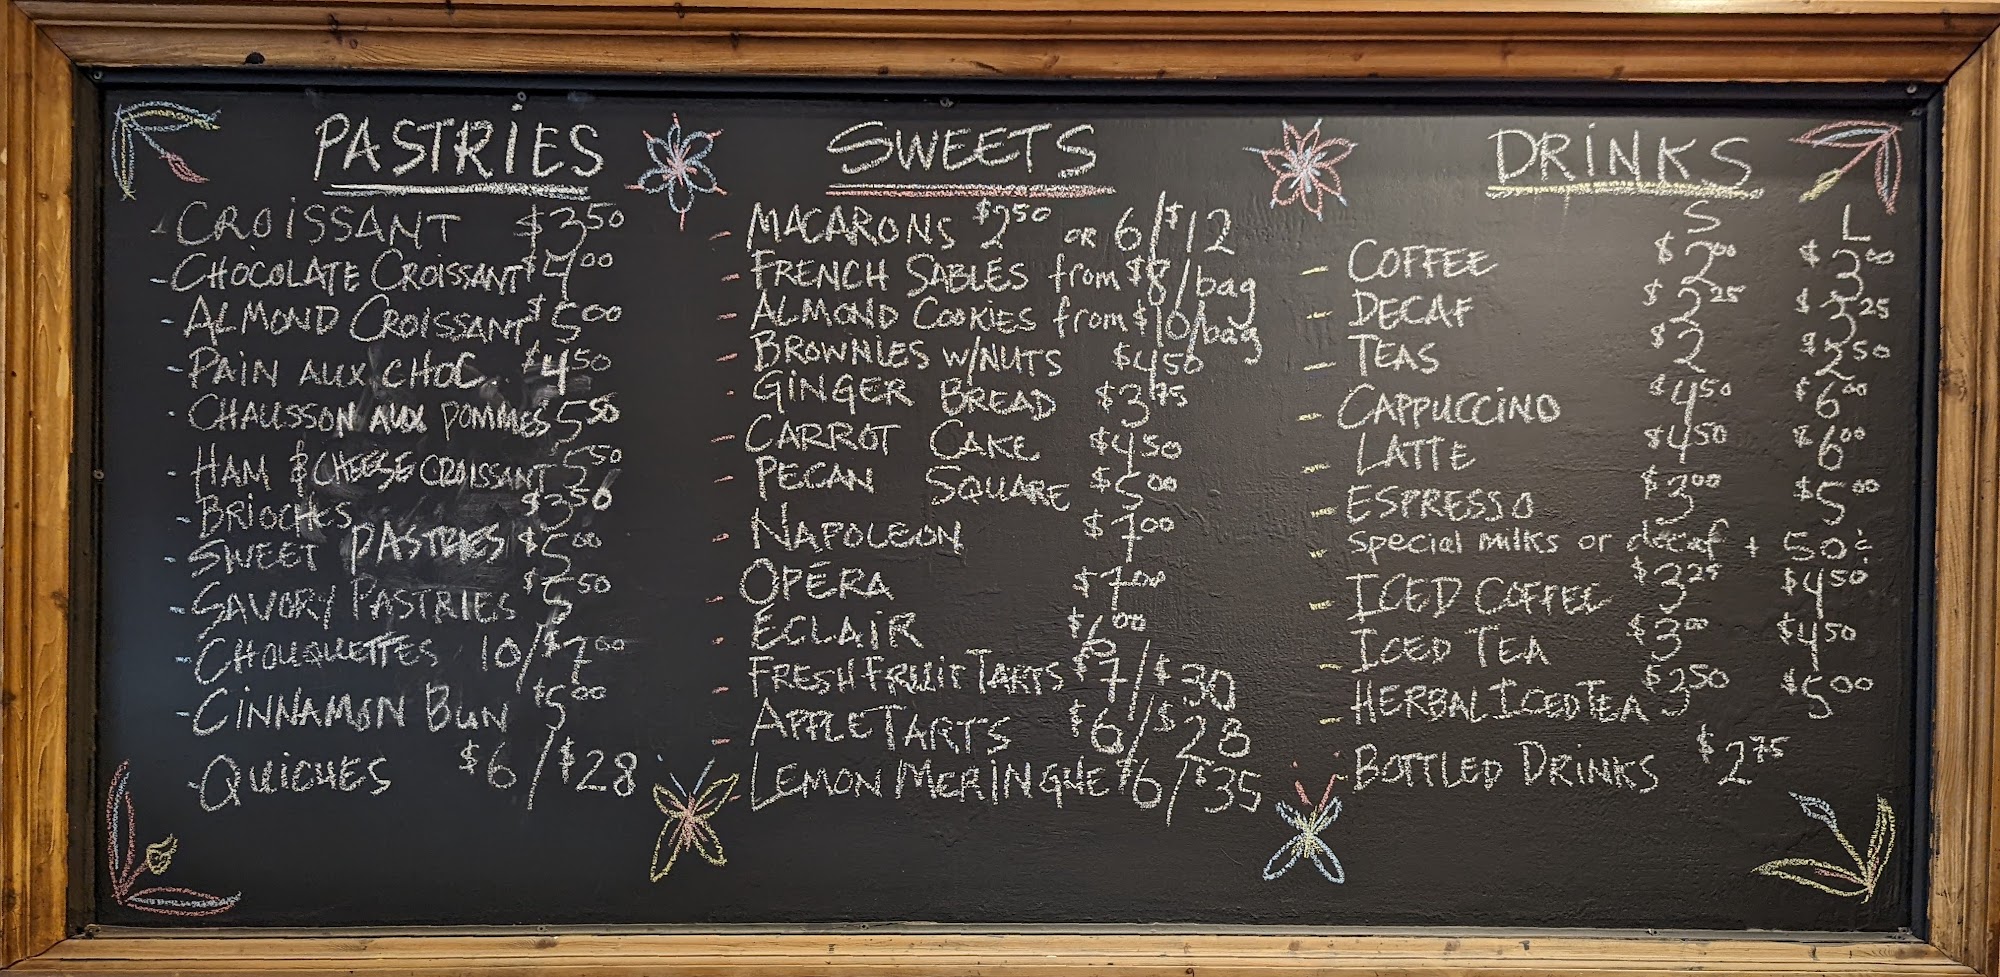 PASTRIES
- CROISSANT $3.50
- CHOCOLATE CROISSANT $4.00
- ALMOND CROISSANT $5.00
- PAIN AUX CHOC. $4.50
- CHAUSSON AUX POMMES 5.50
- HAM & CHEESE CROISSANT 5.50
- BRIOCHES $3.50
- SWEET PASTRIES $5.00
- SAVORY PASTRIES $5.50
- CHOUQUETTES 10/$7.00
- CINNAMON BUN $5.00
- QUICHES $6/$28
SWEETS
- MACARONS $2.50 OR 6/$12
- FRENCH SABLES from $8/bag
- ALMOND COOKIES from $10/bag
- BROWNIES W/NUTS $4.50
- GINGER BREAD $3.75
- CARROT CAKE $4.50
- PECAN SQUARE $5.00
- NAPOLEON $7.00
- OPERA $7.00
- ECLAIR $6.00
- FRESH FRUIT TARTS $7/$30
- APPLE TARTS $6/$28
- LEMON/MERINGUE $6/$35
DRINKS
S L
- COFFEE $2.00 $3.00
- DECAF $2.25 $3.25
- TEAS $2 $2.50
- CAPPUCCINO $4.50 $6.00
- LATTE $4.50 $6.00
- ESPRESSO $3.00 $5.00
- special milks or decaf + 50¢
- ICED COFFEE $3.25 $4.50
- ICED TEA $3.00 $4.50
- HERBAL ICED TEA $3.50 $5.00
- BOTTLED DRINKS $2.75